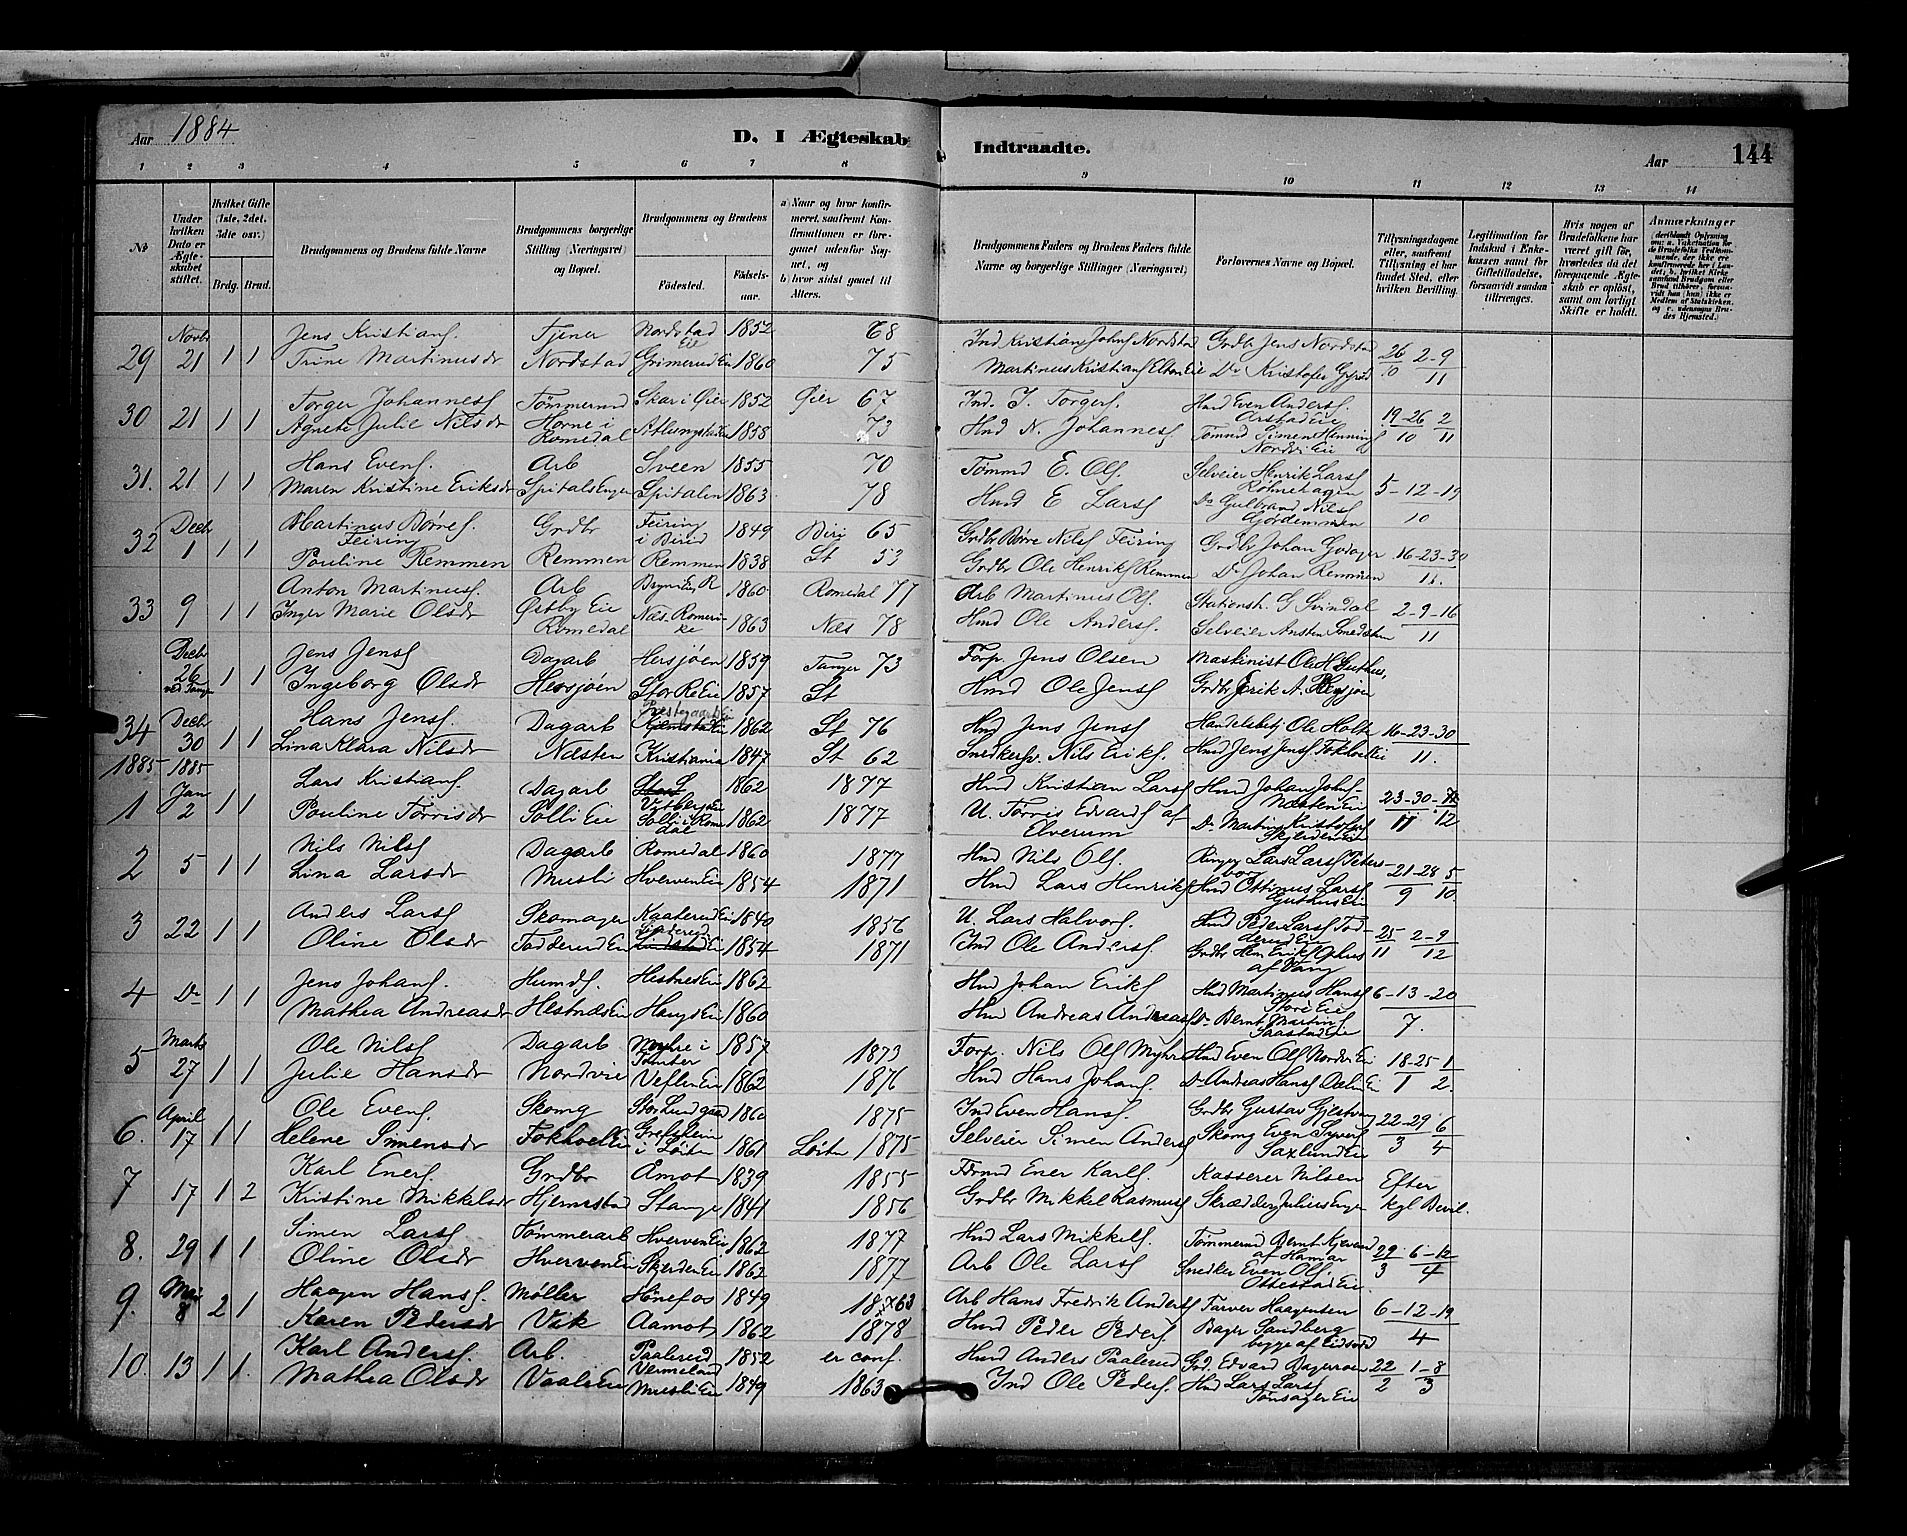 Aar 1884 D. I Ægteskab Indtraadte. Aar 144
1 2 3 4 5 6 7 8 9 10 11 12 13 14
No
Under hvilken Dato er Ægteskabet stiftet.
Hvilket Gifte (1ste, 2det, 3die osv.)
Brdg. Brud.
Brudgommens og Brudens fulde Navne
Brudgommens borgerlige Stilling (Næringsvei) og Bopæl.
Brudgommens og Brudens
Fødested. Fødselsaar.
a) Naar og hvor konfirmeret, saafremt Konfirmationen er foregaaet udenfor Sognet, og
b) hvor sidst gaaet til Alters.
Brudgommens Faders og Brudens Faders fulde Navne og borgerlige Stillinger (Næringsvei)
Forlovernes Navne og Bopæl.
Tillysningsdagene eller, saafremt Tillysning ei har fundet Sted, efter hvilken Bevilling.
Legitimation for Indskud i Enkekassen samt for Giftetilladelse, forsaavidt saadan tiltrænges.
Hvis nogen af Brudefolkene har været gift før, hvorledes da det foregaaende Ægteskab er opløst, samt om lovligt Skifte er holdt.
Anmærkninger
Novbr Jens Kristians. Tjener Nordstad Eie 1852 68 Ind Kristian Johns Nordstad Grdbr Jens Nordstad
29 21 1 1 Trine Martinusdr Nordstad Grimerud Ei 1860 75 Martinus Kristians Do Kristofer 26 2-9 10 11
Torger Johanness Tømmermd Skar i Øier 1852 Øier 67 Ind. J. Torgers. Hmd Even Anders.
30 21 1 1 Agnete Julie Nilsdr Horne i Romedal 1858 73 Hmd N. Johanness Tømmd Simen Hennings Nordvi Eie 19-26 2 10 11
Hans Evens. Arb Sveen 1855 70 Tømmd E. Ols. Selveier Henrik Lars
31. 21 1 1 Maren Kristine Eriksdr Spitalsengen Spitalen 1863 78 Hmd E Lars Do Gulbrand Nils 5-12-19 10
Decbr Martinus Børres. Feiring Grdbr Feiring i Birid 1849 Biri 65 Grdbr Børre Nils Feiring Grdbr Johan
32 1 1 1 Pouline Remmen Remmen Remmen 1838 St 53 Grdbr Ole Henriks Remmen Do Johan Remmen 16-23-30 11.
Anton Martinus. Arb 1860 Romedal 77 Arb Martinus Ols. Stationsh. G Svindal
33 9 1 1 Inger Marie Olsdr Østby Eie Romedal Næs Romerike 1863 Næs 78 Hmd Ole Anders. Selveier Ansten 2-9-16 11
Decbr Jens Jens Dagarb Hersjøen 1859 Tangen 73 Forp. Jens Olsen Maskinist Ole H Guthus,
26 1 1 Ingeborg Olsdr Hersjøen Stor Re Eie 1857 St Hmd Ole Jens Grdbr Erik A. Hersjøen
34 Decbr 30 1 1 Hans Jens. Dagarb Prestegaard Ei 1862 St 76 Hmd Jens Jens Handelsbetj Ole Holte 16-23-30
Lina Klara Nilsdr Næsten Kristiania 1847 St 62 Snedkersv. Nils Eriks. Hmd Jens Jens Fokhol Ei 11.
1885 1885
Jan Lars Kristians. Dagarb 1862 1877 Hmd Kristian Lars Hmd Johan Johns Næsten Ei
1 2 1 1 Pouline Tørrisdr Solli Eie Solli i Romedal 1862 1877 U. Tørris Edvards af Elverum Do Martinus Kristofers 23-30-7 11 12
Nils Nils Dagarb Romedal 1860 1877 Hmd Nils Ols. Ringer Lars Lars Petersborg
2 5 1 1 Lina Larsdr Musli Hverven Ei 1854 1871 Hmd Lars Henriks Hmd Ottinus Lars Guthus Ei 21-28 5 9 10
Anders Lars Skomager Kaaterud Ei 1840 1856 U. Lars Halvors. Hmd Peder Lars Tadderud Ei
3 22 1 1 Oline Olsdr Tadderud Ei 1854 1871 Ind Ole Anders Grdbr af Vang 25 2-9 11 12
Jens Johans. Huusm. Hestnes Ei 1862 Hmd Johan Eriks Hmd Martinus Hans
4 Do 1 1 Mathea Andreasdr Hestnes Ei Haug Ei 1860 Hmd Andreas Andreass Do Bernt Martins Saastad Eie 6-13-20 7.
Marts Ole Nils Dagarb Myhre i Tomter 1857 1873 Forp. Nils Ols Myhre Hmd Even Ols Nordvi Ei
5 27 1 1 Julie Hansdr Nordvie Veflen Ei 1862 1876 Hmd Hans Johans. Do Andreas Hans Dælin Ei 18-25 1 1 2.
April Ole Evens. Skomg Stor Lundgaard 1860 1875 Ind Even Hans. Grdbr Gustav Gjestvang
6. 17 1 1 Helene Simensdr Fokhol Ei Grefsheim i Løiten 1861 Løiten 1875 Selveier Simen Anders Skomg Even Syvers Saxlund Ei 22-29 6 3 4
Karl Eners. Grdbr Aamot 1839 1855 Tømmd Ener Karls. Kasserer Nilsen Efter
7 17 1 2 Kristine Mikkelsdr Hjermstad Stange 1841 1856 Grdbr Mikkel Rasmus Skrædder Julius Engen kgl Bevil.
Simen Lars Tømmerarb Hverven Ei 1862 1877 Hmd Lars Mikkels. Tømmermd Bernt af Hamar
8. 29 1 1 Oline Olsdr Hverven Ei Skjerden Ei 1862 1877 Arb Ole Lars Snedker Even Ols. Ottestad Eie 29 6-12 3 4
Mai Haagen Hans. Møller Hønefos 1849 1863 Arb Hans Fredrik Anders Farver Haagensen
9. 8 2 1 Karen Pedersdr Vik Aamot 1862 1878 Hmd Peder Peders Bager Sandberg begge af Eidsvold 6-12-19 4
Karl Anders. Arb. Paalerud Vermeland 1852 er conf. Hmd Anders Paalerud Grd. Edvard
10. 13 1 1. Mathea Olsdr Vaali Eie Musli Ei 1849 1863 Ind Ole Peders. Hmd Lars Lars Tønsager Eie 22 1-8 2 3